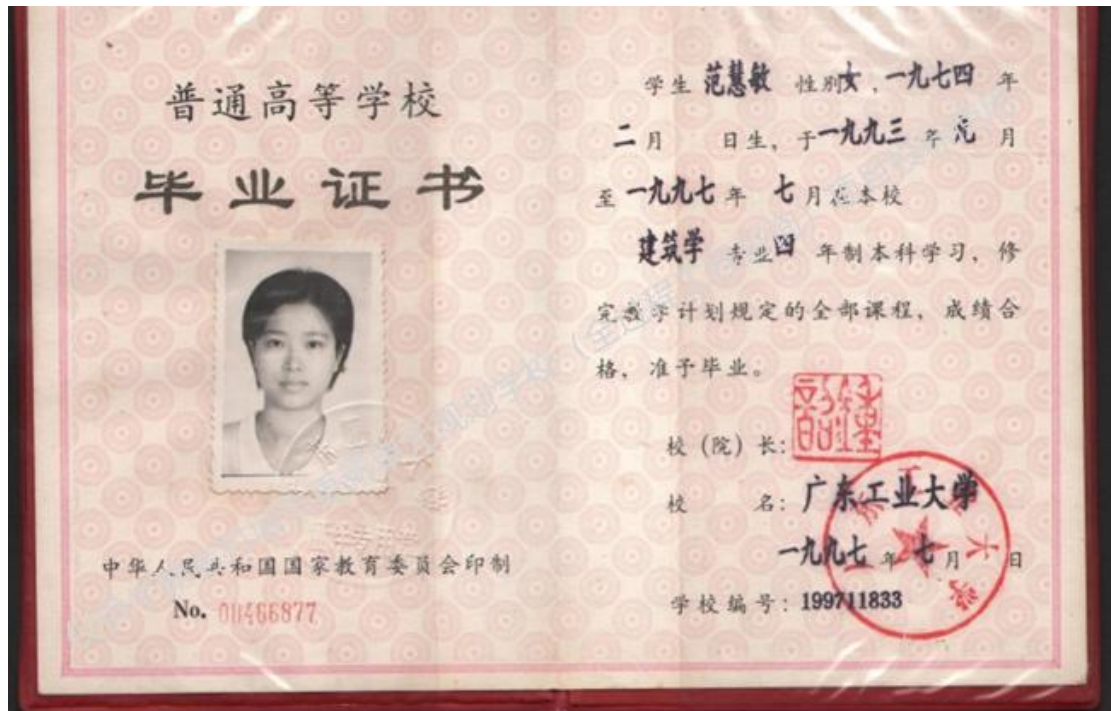 普通高等学校
毕业证书
中华人民共和国国家教育委员会印制
No. 00466877
学生 范慧敏 性别女，一九七四 年
二月 日生，于一九九三 年 月
至一九九七年 七月在本校
建筑学 专业四 年制本科学习，修
完教学计划规定的全部课程，成绩合
格，准予毕业。
校（院）长：
校 名：广东工业大学
一九九七 年 七月 日
学校编号：199711833